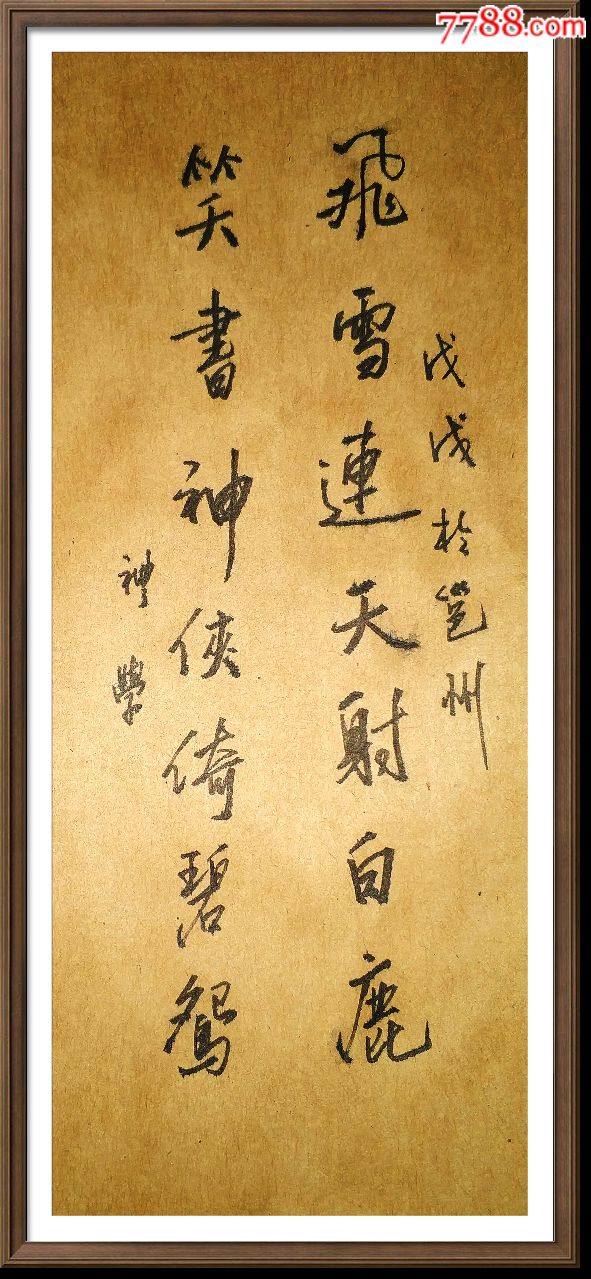 7788.com
戊戌於邕州
飛雪連天射白鹿
笑書神俠倚碧鴛
神